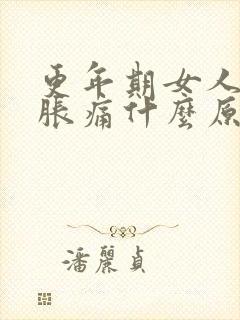 更年期女人
脹痛什麼原
潘麗貞